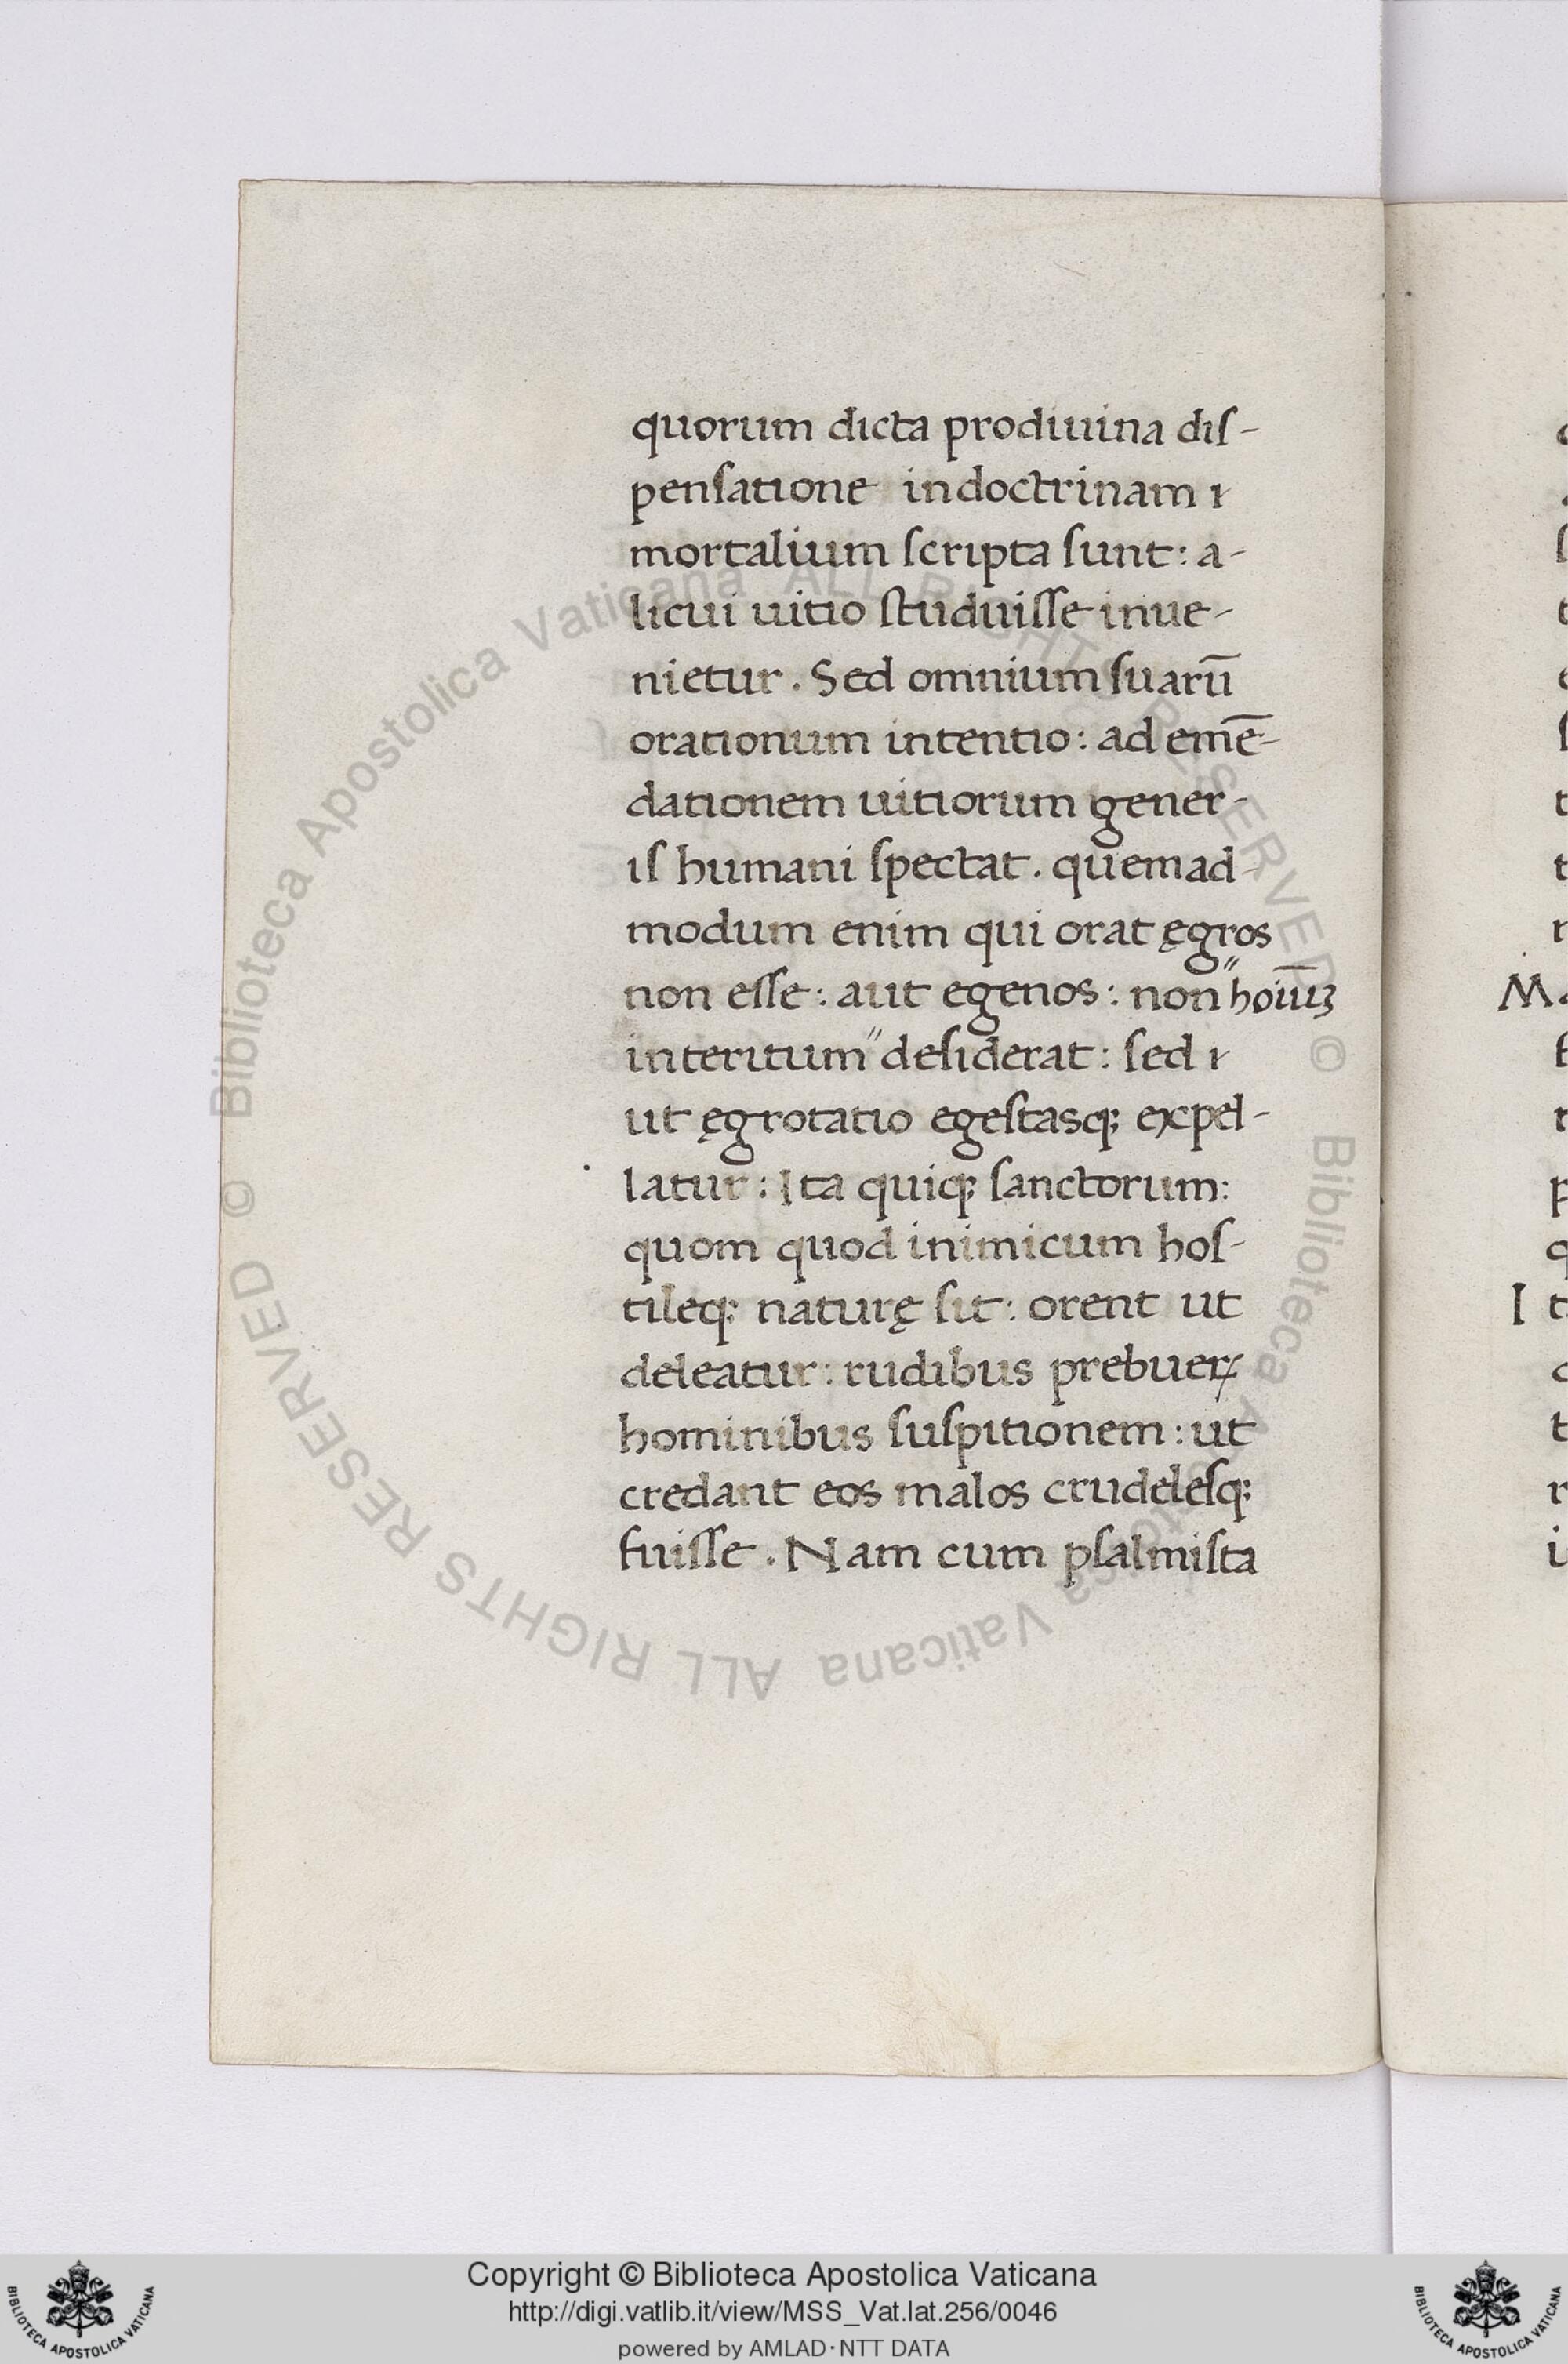 quorum dicta prodiuina diſ-
penſatione indoctrinam ɿ
mortalium ſcripta ſunt: a-
licui uitio ſtuduiſſe inue-
nietur. Sed omnium ſuarū
orationum intentio: ad emē-
dationem uitiorum gener-
iſ humani ſpectat. quemad-
modum enim qui orat ęgros
non eſſe: aut egenos: non" hoīuꝫ
interitum" deſiderat: ſed ɿ
ut ęgrotatio egeſtasq; expel-
latur: Ita quiq; ſanctorum:
quom quod inimicum hoſ-
tileq; naturę ſit: orent ut
deleatur: rudibus prebueꝝ
hominibus ſuſpitionem: ut
credant eos malos crudeleſq;
fuiſſe. Nam cum pſalmiſta
M
I
© Biblioteca Apostolica Vaticana ALL RIGHTS RESERVED © Biblioteca Apostolica Vaticana ALL RIGHTS RESERVED
Copyright © Biblioteca Apostolica Vaticana
http://digi.vatlib.it/view/MSS_Vat.lat.256/0046
powered by AMLAD·NTT DATA
BIBLIOTECA APOSTOLICA VATICANA
BIBLIOTECA APOSTOLICA VATICANA